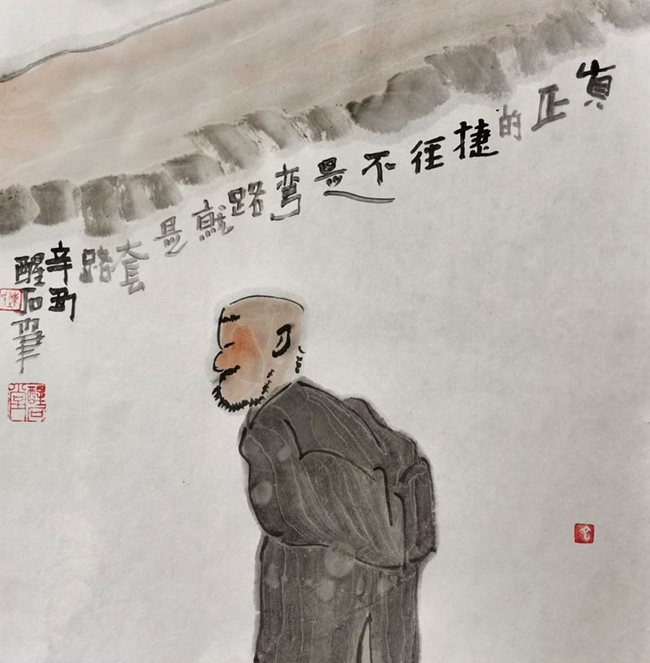 真正的捷径不是弯路就是套路
辛丑
醒石筆